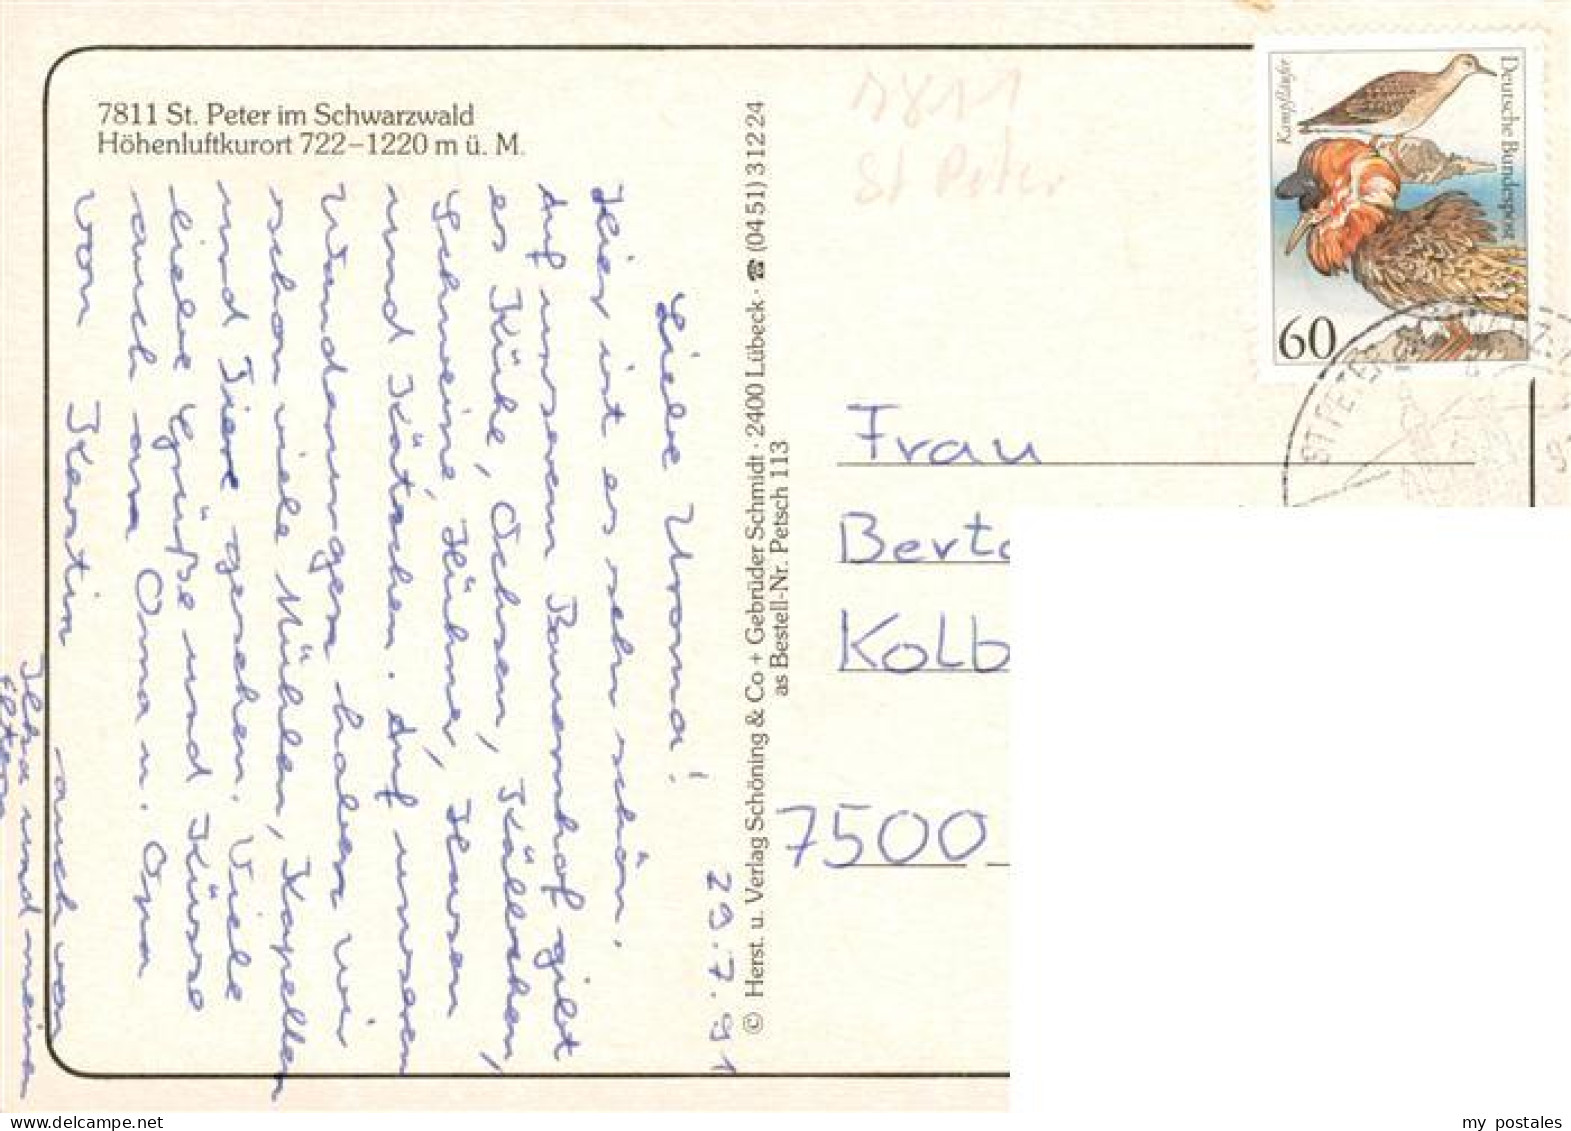 7811 St. Peter im Schwarzwald
Höhenluftkurort 722–1220 m ü. M.
29.7.91
Liebe Uroma!
Hier ist es sehr schön.
Auf unserem Bauernhof gibt
es Kühe, Ochsen, Kälbchen,
Schweine, Hühner, Hasen
und Kätzchen. Auf unseren
Wanderungen haben wir
schon viele Mühlen, Kapellen
und Tiere gesehen. Viele
liebe Grüße und Küsse
auch an Oma u. Opa
von Kerstin
auch von
und meinen
Eltern
© Herst. u. Verlag Schöning & Co + Gebrüder Schmidt · 2400 Lübeck · ☎ (0451) 31224
as Bestell-Nr. Petsch 113
7811
St Peter
Kampfläufer
Deutsche Bundespost
60
ST PETER
Frau
Berta
Kolb
7500
my postales